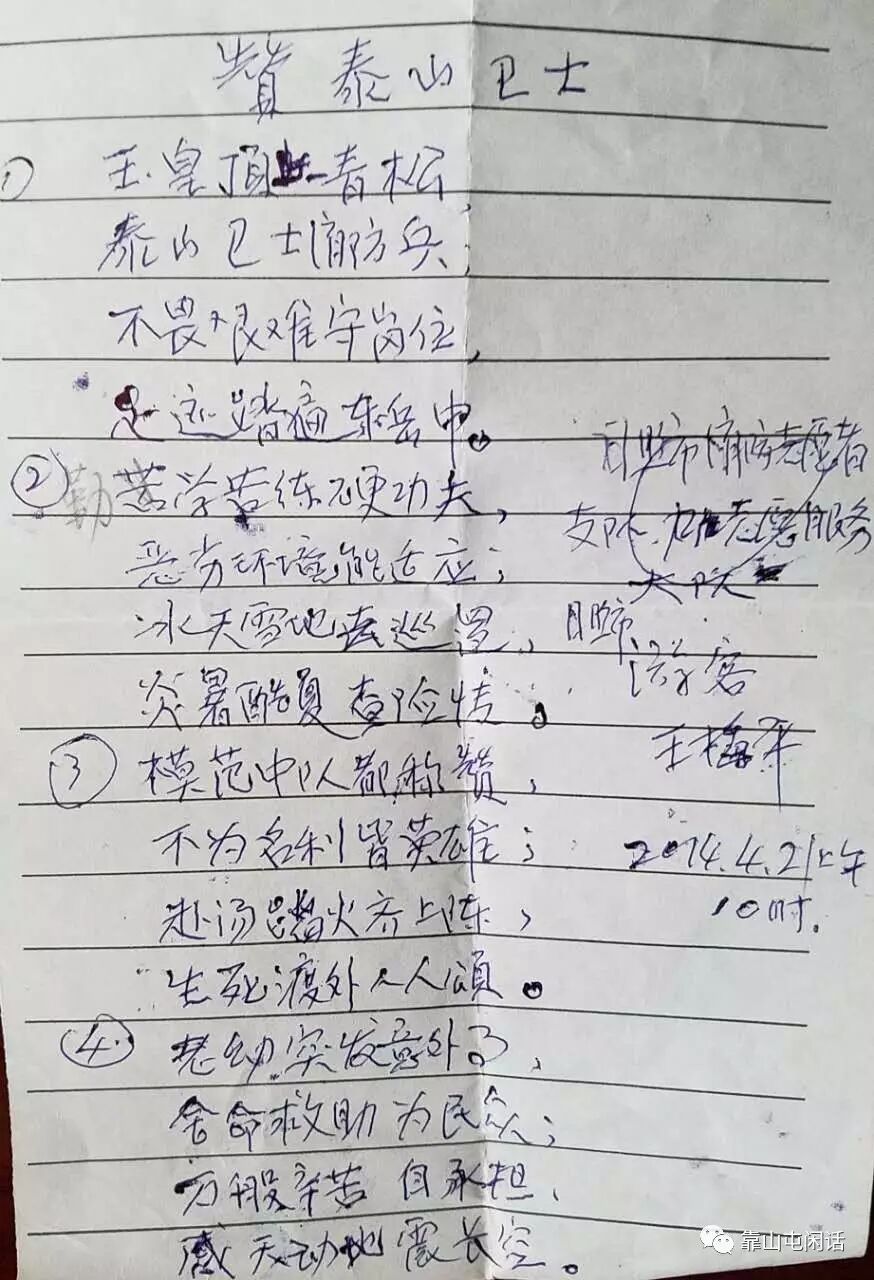 赞泰山卫士
① 玉皇顶上一青松,
泰山卫士消防兵;
不畏艰难守岗位,
足迹踏遍东岳中。
② 勤学苦练硬功夫,
恶劣环境能适应;
冰天雪地去巡逻,
炎暑酷夏查险情。
③ 模范中队都称赞,
不为名利皆英雄;
赴汤蹈火齐上阵,
生死渡外人人颂。
④ 老幼突发意外了,
舍命救助为民众;
万般辛苦自承担,
感天动地震长空。
日照市消防志愿者
支队.志愿服务
大队
日照市
游客
王梅
2014.4.21上午
10时.
靠山屯闲话